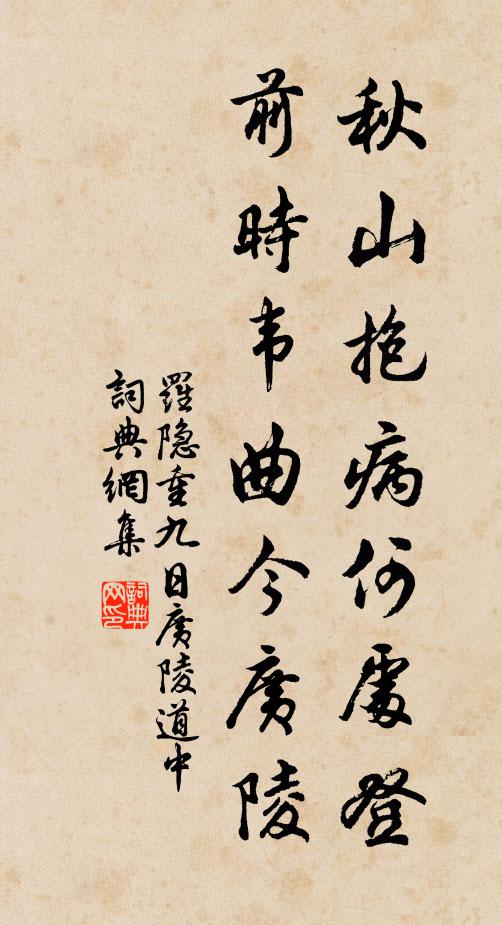 秋山抱病何處登
前時韦曲今廣陵
羅隐重九日廣陵道中
詞典網集
詞典
网印